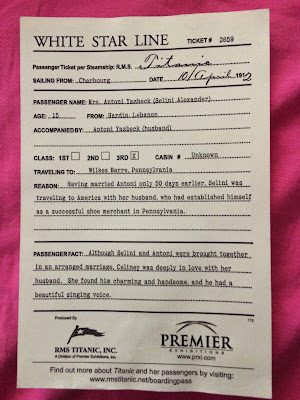 WHITE STAR LINE TICKET # 2659
Passenger Ticket per Steamship: R.M.S. Titanic
SAILING FROM: Cherbourg DATE 10/April 1912
PASSENGER NAME: Mrs. Antoni Yazbeck (Selini Alexander)
AGE: 15 From: Hardin, Lebanon
ACCOMPANIED BY: Antoni Yazbeck (husband)
CLASS: 1ST 2ND 3RD X CABIN # Unknown
TRAVELING TO: Wilkes Barre, Pennsylvania
REASON: Having married Antoni only 50 days earlier, Selini was
traveling to America with her husband, who had established himself
as a successful shoe merchant in Pennsylvania.
PASSENGER FACT: Although Selini and Antoni were brought together
in an arranged marriage, Celiney was deeply in love with her
husband. She found him charming and handsome, and he had a
beautiful singing voice.
Produced By
112
RMS TITANIC, INC.
A Division of Premier Exhibitions, Inc.
PREMIER
EXHIBITIONS
www.prxi.com
Find out more about Titanic and her passengers by visiting:
www.rmstitanic.net/boardingpass